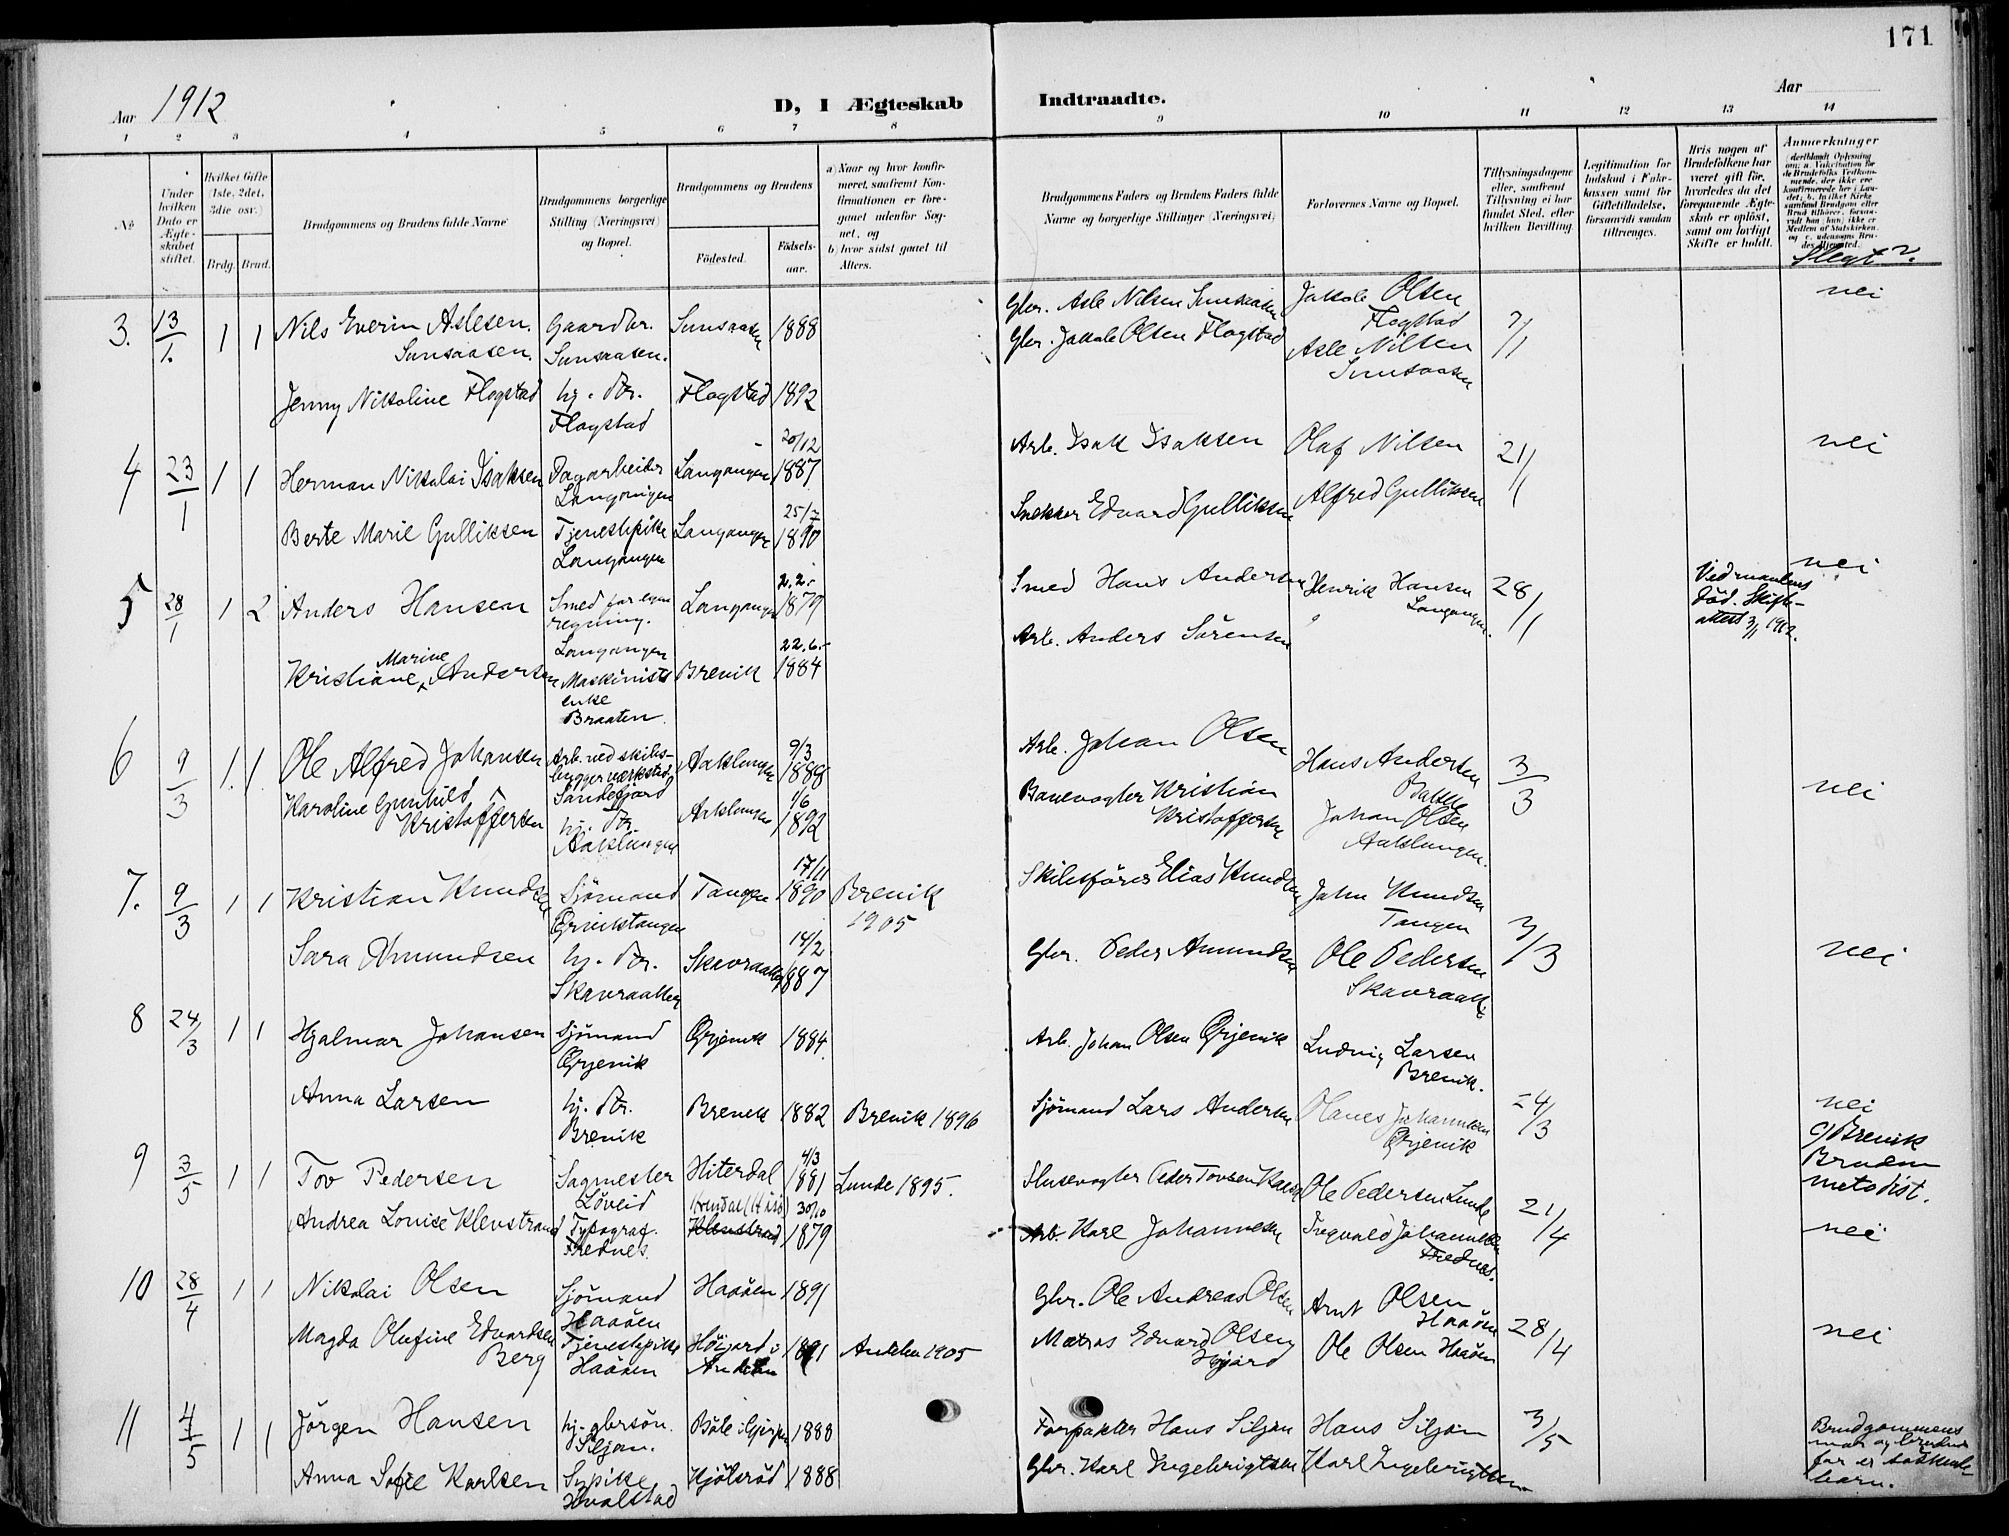 171
Aar 1912
D, I Ægteskab Indtraadte.
Aar
1 2 3 4 5 6 7 8 9 10 11 12 13 14
No
Under hvilken Dato er Ægteskabet stiftet.
Hvilket Gifte (1ste, 2det, 3die osv.)
Brdg. Brud.
Brudgommens og Brudens fulde Navne
Brudgommens borgerlige Stilling (Næringsvei) og Bopæl.
Brudgommens og Brudens
Fødested.
Fødselsaar.
a) Naar og hvor konfirmeret, saafremt Konfirmationen er foregaaet udenfor Sognet, og
b) hvor sidst gaaet til Alters.
Brudgommens Faders og Brudens Faders fulde Navne og borgerlige Stillinger (Næringsvei)
Forlovernes Navne og Bopæl.
Tillysningsdagene eller, saafremt Tillysning ei har fundet Sted, efter hvilken Bevilling.
Legitimation for Indskud i Enkekassen samt for Giftetilladelse, forsaavidt saadan tiltrænges.
Hvis nogen af Brudefolkene har været gift før, hvorledes da det foregaaende Ægteskab er opløst, samt om lovligt Skifte er holdt.
Anmærkninger
Slegt?
3. 13/1. 1 1 Nils Everin Aslesen Sunsaasen. Gaardbr. Sunsaasen. Sunsaasen 1888
Gbr. Asle Nilsen Sunsaasen Jakob Olsen Flogstad 7/1 nei
Jenny Nikoline Flogstad hj. dtr. Flogstad Flogstad 1892
Gbr. Jakob Olsen Flogstad Asle Nilsen Sunsaasen
4 23/1 1 1 Herman Nikolai Isaksen Dagarbeider Langangen Langangen 20/12 1887
Arb. Isak Isaksen Olaf Nilsen 21/1 nei
Berte Marie Gulliksen Tjenestepike Langangen Langangen 25/7 1890
Snekker Edvard Gulliksen Alfred Gulliksen
5 28/1 1 2 Anders Hansen Smed for egen regning. Langangen Langangen 2.2. 1879
Smed Hans Andersen Henrik Hansen Langangen. 28/1 Ved mandens død. Skifteattest 3/1 1912. nei
Kristiane Marine Andersen Maskinists enke Braaten Brevik 22.6. 1884
Arb. Anders Sørensen
6 9/3 1. 1. Ole Alfred Johansen Arb. ved skibsbyggerverksted Sandefjord Aaklungen 9/3 1888
Arb. Johan Olsen Hans Andersen Bakke 3/3 nei
Karoline Gunhild Kristoffersen hj. dtr. Aaklungen Aaklungen 1/6 1892
Banevogter Kristian Kristoffersen Johan Olsen Aaklungen.
7. 9/3 1 1 Kristian Knudsen Sjömand Ørvikstangen Tangen 17/11 1890 Brevik 1905
Skibsfører Elias Knudsen John Knudsen Tangen 3/3 nei
Sara Amundsen hj. dtr. Skavraaker Skavraaker 14/2 1887
Gbr. Peder Amundsen Ole Pedersen Skavraaker
8 24/3 1 1 Hjalmar Johansen Sjömand Ørjevik Ørjevik 1884.
Arb. Johan Olsen Ørjevik Ludvig Larsen Brevik.
Anna Larsen hj. dtr. Brevik Brevik 1882 Brevik 1896
Sjömand Lars Andersen Olaves Johannesen Ørjevik 24/3 nei
9 3/5 1 1 Tov Pedersen Sagmester Löveid Hiterdal 4/3 1881 Lunde 1895.
Slusevogter Peder Tovsen Ole Pedersen Lunde 21/4 Brevik Bruden metodist.
Andrea Louise Klevstrand Typograf. Frednes 30/10 1879
Arb. Karl Johannesen Ingvald Johannesen Frednes. nei
10 28/4 1 1 Nikolai Olsen Sjömand Haaöen Haaöen 1891
Gbr. Ole Andreas Olsen Arnt Olsen Haaöen 28/4 nei
Magda Olufine Edvardsen Berg Tjenestepike Haaöen Höigard i 1891 1905
Matros Edvard Olsen Ole Olsen Haaöen
11 4/5 1 1 Jörgen Hansen hj. gbrsön. Siljan. Böle i Gjerpen 1888
Forpakter Hans Siljan Hans Siljan 3/5 Brudgommens mor og brudens far er søskendebarn.
Anna Sofie Karlsen Sypike Hvalstad 1888
Gbr. Karl Ingebrigtsen Karl Ingebrigtsen